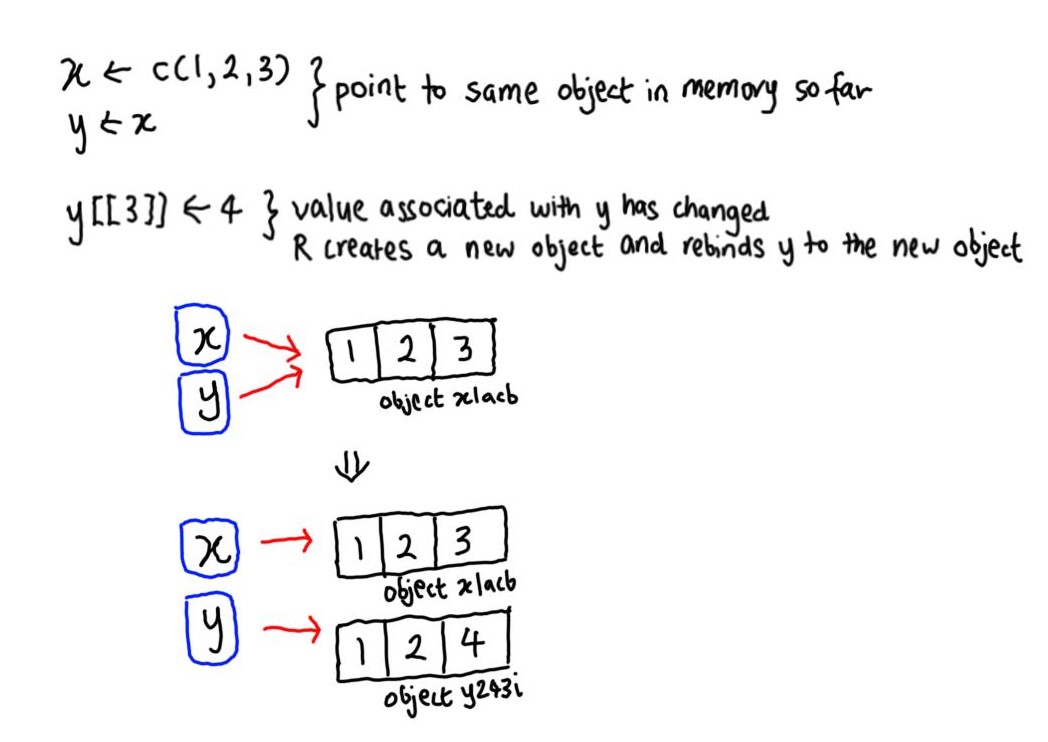 x ← c(1,2,3) } point to same object in memory so far
y ← x
y[[3]] ← 4 } value associated with y has changed
R creates a new object and rebinds y to the new object
x
1 2 3
y
object x1acb
⇓
x
1 2 3
object x1acb
y
1 2 4
object y243i